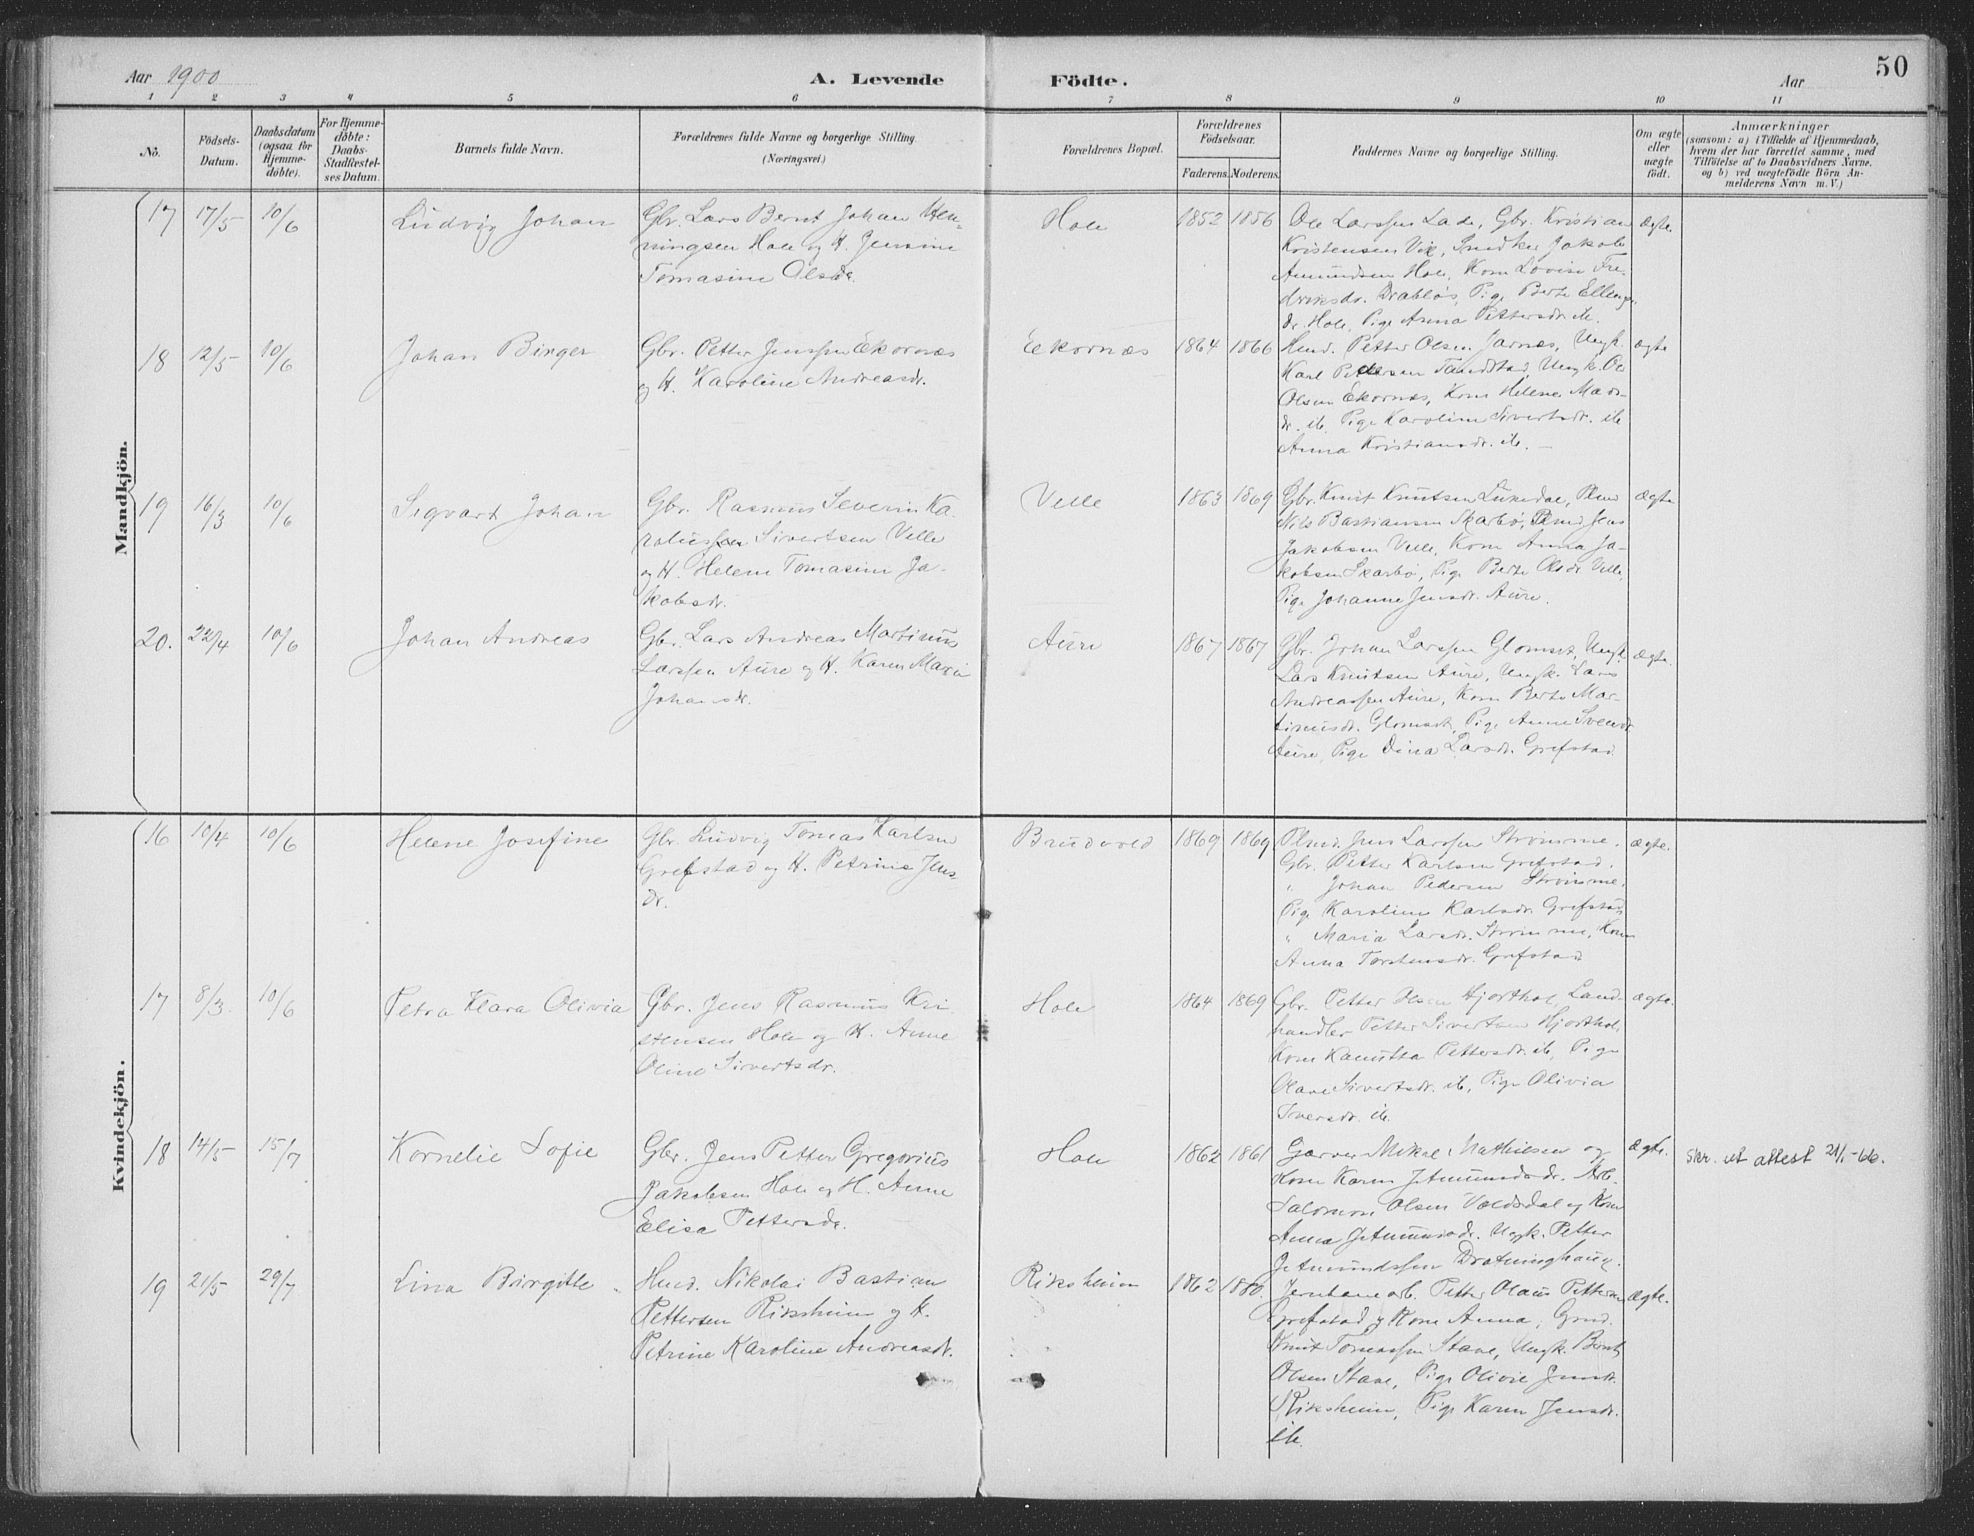 50
Aar 1900
A. Levende Födte.
Aar
1 2 3 4 5 6 7 8 9 10 11
No.
Födsels-Datum.
Daabsdatum (ogsaa for Hjemme-döbte).
For Hjemme-döbte: Daabs-Stadfæstel-ses Datum.
Barnets fulde Navn.
Forældrenes fulde Navne og borgerlige Stilling. (Næringsvei.)
Forældrenes Bopæl.
Forældrenes Födselsaar.
Faderens. Moderens.
Faddernes Navne og borgerlige Stilling.
Om ægte eller uægte födt.
Anmærkninger
(saasom: a) i Tilfælde af Hjemmedaab,
hvem der har forrettet samme, med
Tilföielse af to Daabsvidners Navne.
og b) ved uægtefödte Börn An-
melderens Navn m. V.)
Mandkjön.
17 17/5 10/6 Ludvig Johan
Gbr. Lars Bernt Johan Hen-
ningsen Hole og H. Jensine
Tomasine Olsdr.
Hole 1852 1856
Ole Larssen Lade, Gbr. Kristian
Kristensen Vik, Snedker Jakob
Amundsen Hole, Kone Lovise Fre-
driksdr. Drabløs, Pige Berte Ellings-
dr. Hole, Pige Anna Pettersdr. ib.
ægte
18 12/5 10/6 Johan Birger
Gbr. Petter Jenssen Ekornæs
og H. Karoline Andreasdr.
Ekornæs 1864 1866
Hmd. Petter Olsen Jarnæs, Ungk.
Karl Pedersen Tandstad, Ungk. Ole
Olsen Ekornæs, Kone Helene Mads-
dr. ib. Pige Karoline Sivertsdr. ib
Anna Kristiansdr. ib. —
ægte
19 16/3 10/6 Sigvart Johan
Gbr. Rasmus Severin Ka-
roliussen Sivertsen Velle
og H. Helene Tomasine Ja-
kobsdr.
Velle 1863 1869
Gbr. Knut Knutsen
Nils Bastiansen Skarbø, Plmd Jens
Jakobsen Velle, Kone Anna Ja-
kobsen Skarbø, Pige Berte Olsdr. Velle,
Pige Johanne Jensdr. Aure.
ægte
20. 22/4 10/6 Johan Andreas
Gbr. Lars Andreas Martinus
Larssen Aure og H. Karen Maria
Johansdr.
Aure 1867 1867
Gbr. Johan Larssen Glomset, Ungk.
Lars Knutsen Aure, Ungk. Lars
Andreassen Aure, Kone Berte Mar-
tinusdr. Glomset, Pige Anne Svendr.
Aure, Pige Dina Larsdr. Grefstad
ægte
Kvindekjön.
16 10/4 10/6 Helene Josefine
Gbr. Ludvig Tomas Karlsen
Grefstad og H. Petrine Jens-
dr.
Brudvold 1869 1869
Plmd. Jens Larssen Strømme.
Gbr. Petter Karlsen Grefstad.
" Johan Pedersen Strømme,
Pige Karoline Karlsdr. Grefstad,
" Maria Larsdr. Strømme, Kone
Anna Torstensdr. Grefstad
ægte.
17 8/3 10/6 Petra Klara Olivia
Gbr. Jens Rasmus Kri-
stensen Hole og H. Anne
Oline Sivertsdr.
Hole 1864 1869
Gbr. Petter Olsen Hjorthol, Land-
handler Petter Sivertsen Hjorthol,
Kone Kanutta Pettersdr. ib, Pige
Olave Sivertsdr. ib, Pige Olivia
Iversdr. ib.
ægte.
18 14/5 15/7 Kornelie Sofie
Gbr. Jens Petter Gregorius
Jakobsen Hole og H. Anne
Elisa Pettersdr.
Hole 1862 1861
Garver Mikal Mathiesen og
Kone Karen J. Amundsdr. Arb.
Salomon Olsen Valdsdal og Kone
Anna J. Amundsdr. Ungk. Petter
J. Amundssen Dronninghaug.
ægte.
Skr. ut attest 21/1-66.
19 21/5 29/7 Lina Birgitte
Hmd. Nikolai Bastian
Pettersen Riksheim og H.
Petrine Karoline Andreasdr.
Riksheim 1862 1860.
Jernbanearb. Petter Olaus Pettersen
Grefstad og Kone Anna, Gmd.
Knut Tomassen Stave, Ungk. Bernt
Olsen Stave, Pige Olivie Jensdr.
Riksheim, Pige Karen Jensdr.
ib.
ægte.